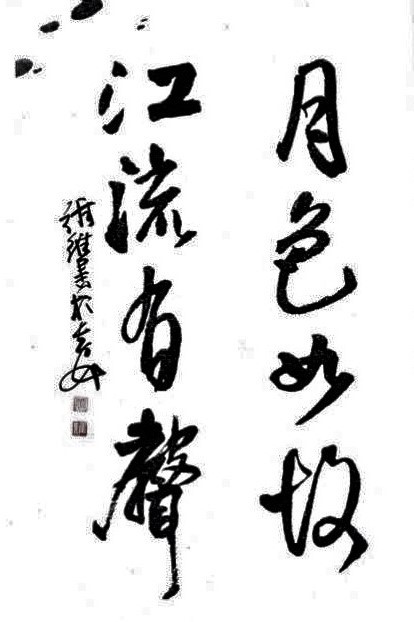 月色如故
江流有聲